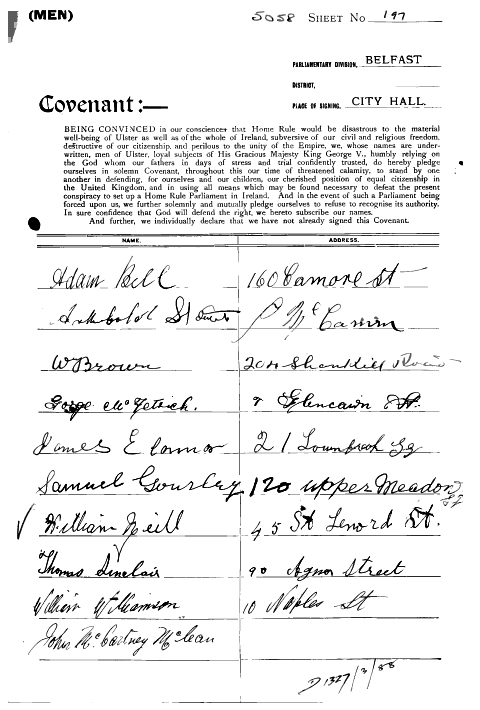 (MEN)
5058 SHEET No 197
PARLIAMENTARY DIVISION, BELFAST
DISTRICT,
PLACE OF SIGNING, CITY HALL.
Covenant:—
BEING CONVINCED in our consciences that Home Rule would be disastrous to the material
well-being of Ulster as well as of the whole of Ireland, subversive of our civil and religious freedom,
destructive of our citizenship, and perilous to the unity of the Empire, we, whose names are under-
written, men of Ulster, loyal subjects of His Gracious Majesty King George V., humbly relying on
the God whom our fathers in days of stress and trial confidently trusted, do hereby pledge
ourselves in solemn Covenant, throughout this our time of threatened calamity, to stand by one
another in defending, for ourselves and our children, our cherished position of equal citizenship in
the United Kingdom, and in using all means which may be found necessary to defeat the present
conspiracy to set up a Home Rule Parliament in Ireland. And in the event of such a Parliament being
forced upon us, we further solemnly and mutually pledge ourselves to refuse to recognise its authority.
In sure confidence that God will defend the right, we hereto subscribe our names.
And further, we individually declare that we have not already signed this Covenant.
NAME. ADDRESS.
Adam Bell 160 Canmore St
Archibald
W Brown Shankill Road
George McFetrich. Glencairn St.
James E Connor 21 Lownbrook Sq
Samuel Gourley 120 upper Meadow St
William Neill 45 St Lenord St.
Thomas Sinclair 90 Agnes Street
William Williamson 10 Naples St
John McCartney McLean
D1327/3/88